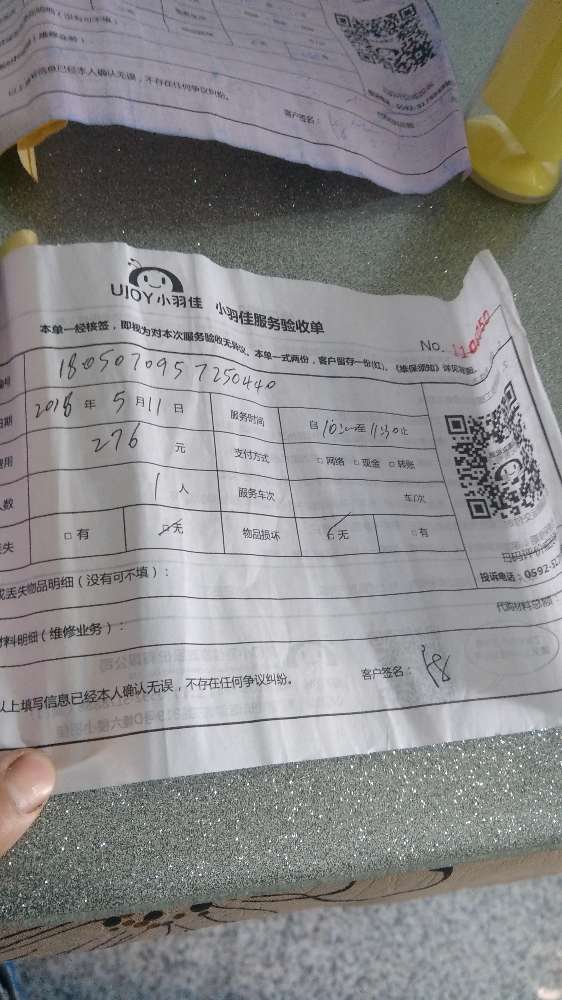 以上填写信息已经本人确认无误，不存在任何争议纠纷。
客户签名：
UJOY小羽佳 小羽佳服务验收单
No. 110350
本单一经核签，即视为对本次服务验收无异议。本单一式两份，客户留存一份(红)。
1805070957250440
2018 年 5 月 11 日 服务时间 自 10:00 至 11:30 止
276 元 支付方式 □ 网络 □ 现金 □ 转账
1 人 服务车次 车/次
□ 有 □ 无 物品损坏 □ 无 □ 有
投诉电话：0592-
丢失物品明细（没有可不填）：
材料明细（维修业务）：
以上填写信息已经本人确认无误，不存在任何争议纠纷。 客户签名：